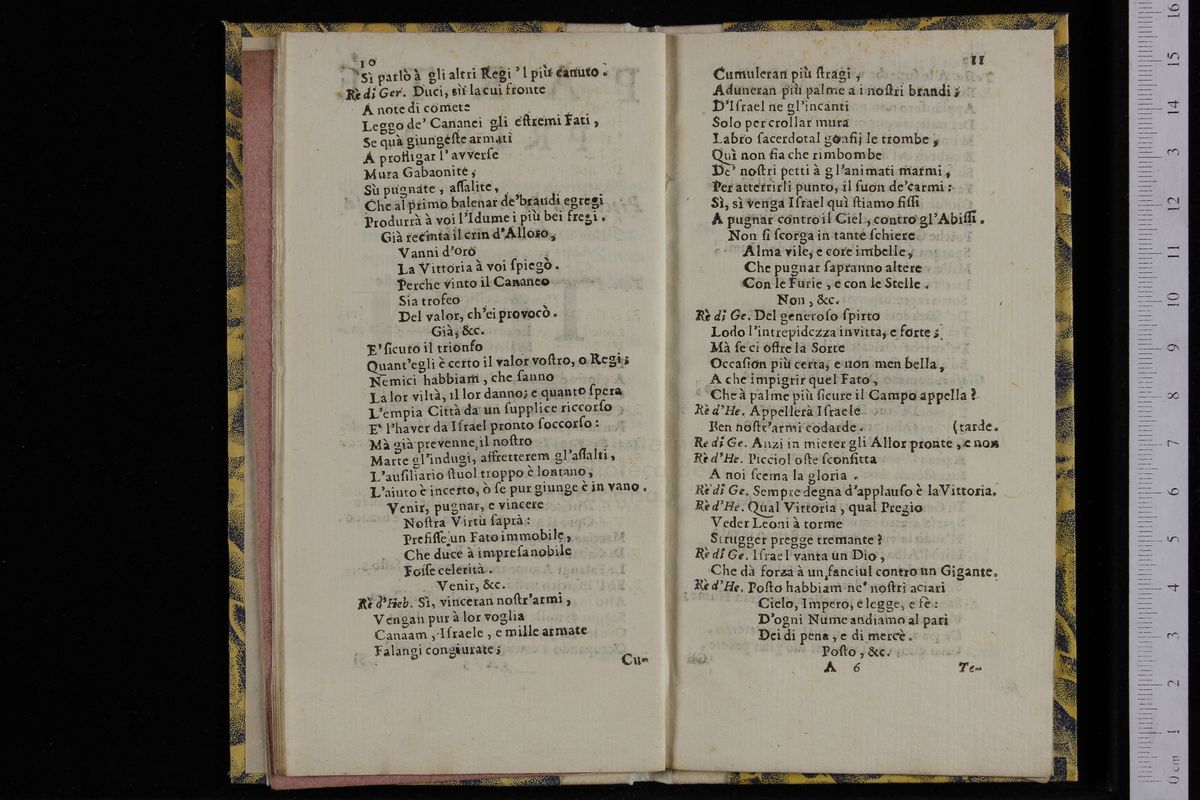 10
Sì parlò à gli altri Regi 'l più canuto.
Rè di Ger. Duci, sù la cui fronte
A note di comete
Leggo de' Cananei gli eſtremi Fati,
Se quà giungeſte armati
A profligar l'avverſe
Mura Gabaonite,
Sù pugnate, aſſalite,
Che al primo balenar de'brandi egregi
Produrrà à voi l'Idume i più bei fregi.
Già recinta il crin d'Alloro,
Vanni d'oro
La Vittoria à voi ſpiegò.
Perche vinto il Cananeo
Sia trofeo
Del valor, ch'ei provocò.
Già, &c.
E' ſicuro il trionfo
Quant'egli è certo il valor voſtro, o Regi;
Nemici habbiam, che ſanno
La lor viltà, il lor danno; e quanto ſpera
L'empia Città da un ſupplice riccorſo
E' l'haver da Iſrael pronto ſoccorſo:
Mà già prevenne il noſtro
Marte gl'indugi, affretterem gl'aſſalti,
L'auſiliario ſtuol troppo è lontano,
L'aiuto è incerto, ò ſe pur giunge è in vano.
Venir, pugnar, e vincere
Noſtra Virtù ſaprà:
Prefiſſe un Fato immobile,
Che duce à impreſa nobile
Foſſe celerità.
Venir, &c.
Rè d'Heb. Sì, vinceran noſtr'armi,
Vengan pur à lor voglia
Canaam, Iſraele, e mille armate
Falangi congiurate;
Cu-
11
Cumuleran più ſtragi,
Aduneran più palme a i noſtri brandi;
D'Iſrael ne gl'incanti
Solo per crollar mura
Labro ſacerdotal gonfij le trombe,
Quì non fia che rimbombe
De' noſtri petti à gl'animati marmi,
Per atterrirli punto, il ſuon de'carmi:
Sì, sì venga Iſrael quì ſtiamo fiſſi
A pugnar contro il Ciel, contro gl'Abiſſi.
Non ſi ſcorga in tante ſchiere
Alma vile, e core imbelle,
Che pugnar ſapranno altere
Con le Furie, e con le Stelle.
Non, &c.
Rè di Ge. Del generoſo ſpirto
Lodo l'intrepidezza invitta, e forte;
Mà ſe ci offre la Sorte
Occaſion più certa, e non men bella,
A che impigrir quel Fato,
Che à palme più ſicure il Campo appella?
Rè d'He. Appellerà Iſraele
Ben noſtr'armi codarde. (tarde.
Re di Ge. Anzi in mieter gli Allor pronte, e non
Rè d'He. Picciol oſte ſconfitta
A noi ſcema la gloria.
Rè di Ge. Sempre degna d'applauſo è la Vittoria.
Rè d'He. Qual Vittoria, qual Pregio
Veder Leoni à torme
Strugger pregge tremante?
Rè di Ge. Iſrael vanta un Dio,
Che dà forza à un fanciul contro un Gigante.
Rè d'He. Poſto habbiam ne' noſtri aciari
Cielo, Impero, e legge, e fè:
D'ogni Nume andiamo al pari
Dei di pena, e di mercè.
Poſto, &c.
A 6
Te-
0 cm 1 2 3 4 5 6 7 8 9 10 11 12 13 14 15 16